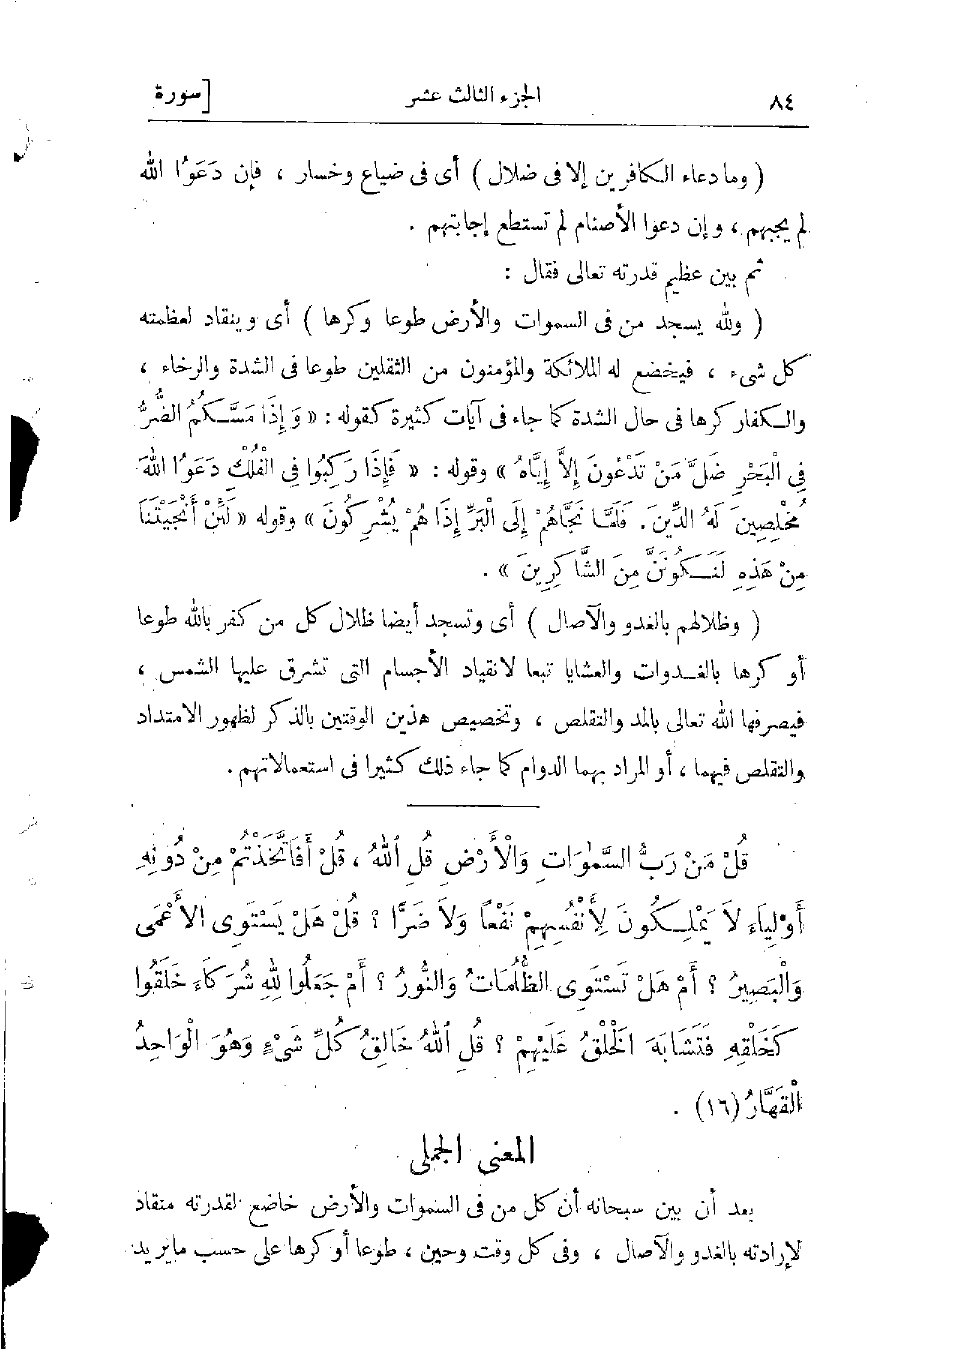 ٨٤ الجزء الثالث عشر [سورة
( وما دعاء الكافرين إلا فى ضلال ) أى فى ضياع وخسار ، فإن دَعَوُا الله
لم يجبهم ، وإن دعوا الأصنام لم تستطع إجابتهم .
ثم بين عظيم قدرته تعالى فقال :
( ولله يسجد من فى السموات والأرض طوعا وكرها ) أى وينقاد لعظمته
كل شىء ، فيخضع له الملائكة والمؤمنون من الثقلين طوعا فى الشدة والرخاء ،
والكفار كرها فى حال الشدة كما جاء فى آيات كثيرة كقوله : « وَإِذَا مَسَّكُمُ الضُّرُّ
فِي الْبَحْرِ ضَلَّ مَنْ تَدْعُونَ إِلاَّ إِيَّاهُ » وقوله : « فَإِذَا رَكِبُوا فِي الْفُلْكِ دَعَوُا اللهَ
مُخْلِصِينَ لَهُ الدِّينَ . فَلَمَّا نَجَّاهُمْ إِلَى الْبَرِّ إِذَا هُمْ يُشْرِكُونَ » وقوله « لَئِنْ أَنْجَيْتَنَا
مِنْ هَذِهِ لَنَكُونَنَّ مِنَ الشَّاكِرِينَ » .
( وظلالهم بالغدو والآصال ) أى وتسجد أيضا ظلال كل من كفر بالله طوعا
أو كرها بالغدوات والعشايا تبعا لانقياد الأجسام التى تشرق عليها الشمس ،
فيصرفها الله تعالى بالمد والتقلص ، وتخصيص هذين الوقتين بالذكر لظهور الامتداد
والتقلص فيهما ، أو المراد بهما الدوام كما جاء ذلك كثيرا فى استعمالاتهم .
قُلْ مَنْ رَبُّ السَّمٰوَاتِ وَالْأَرْضِ قُلِ ٱللهُ ، قُلْ أَفَاتَّخَذْتُمْ مِنْ دُونِهِ
أَوْلِيَاءَ لاَ يَمْلِكُونَ لِأَنْفُسِهِمْ نَفْعًا وَلاَ ضَرًّا ؟ قُلْ هَلْ يَسْتَوِى الْأَعْمَى
وَالْبَصِيرُ ؟ أَمْ هَلْ تَسْتَوِى الظُّلُمَاتُ وَالنُّورُ ؟ أَمْ جَعَلُوا لِلهِ شُرَكَاءَ خَلَقُوا
كَخَلْقِهِ فَتَشَابَهَ الْخَلْقُ عَلَيْهِمْ ؟ قُلِ ٱللهُ خَالِقُ كُلِّ شَيْءٍ وَهُوَ الْوَاحِدُ
الْقَهَّارُ (١٦) .
المعنى الجملى
بعد أن بين سبحانه أن كل من فى السموات والأرض خاضع لقدرته منقاد
لإرادته بالغدو والآصال ، وفى كل وقت وحين ، طوعا أو كرها على حسب ما يريد